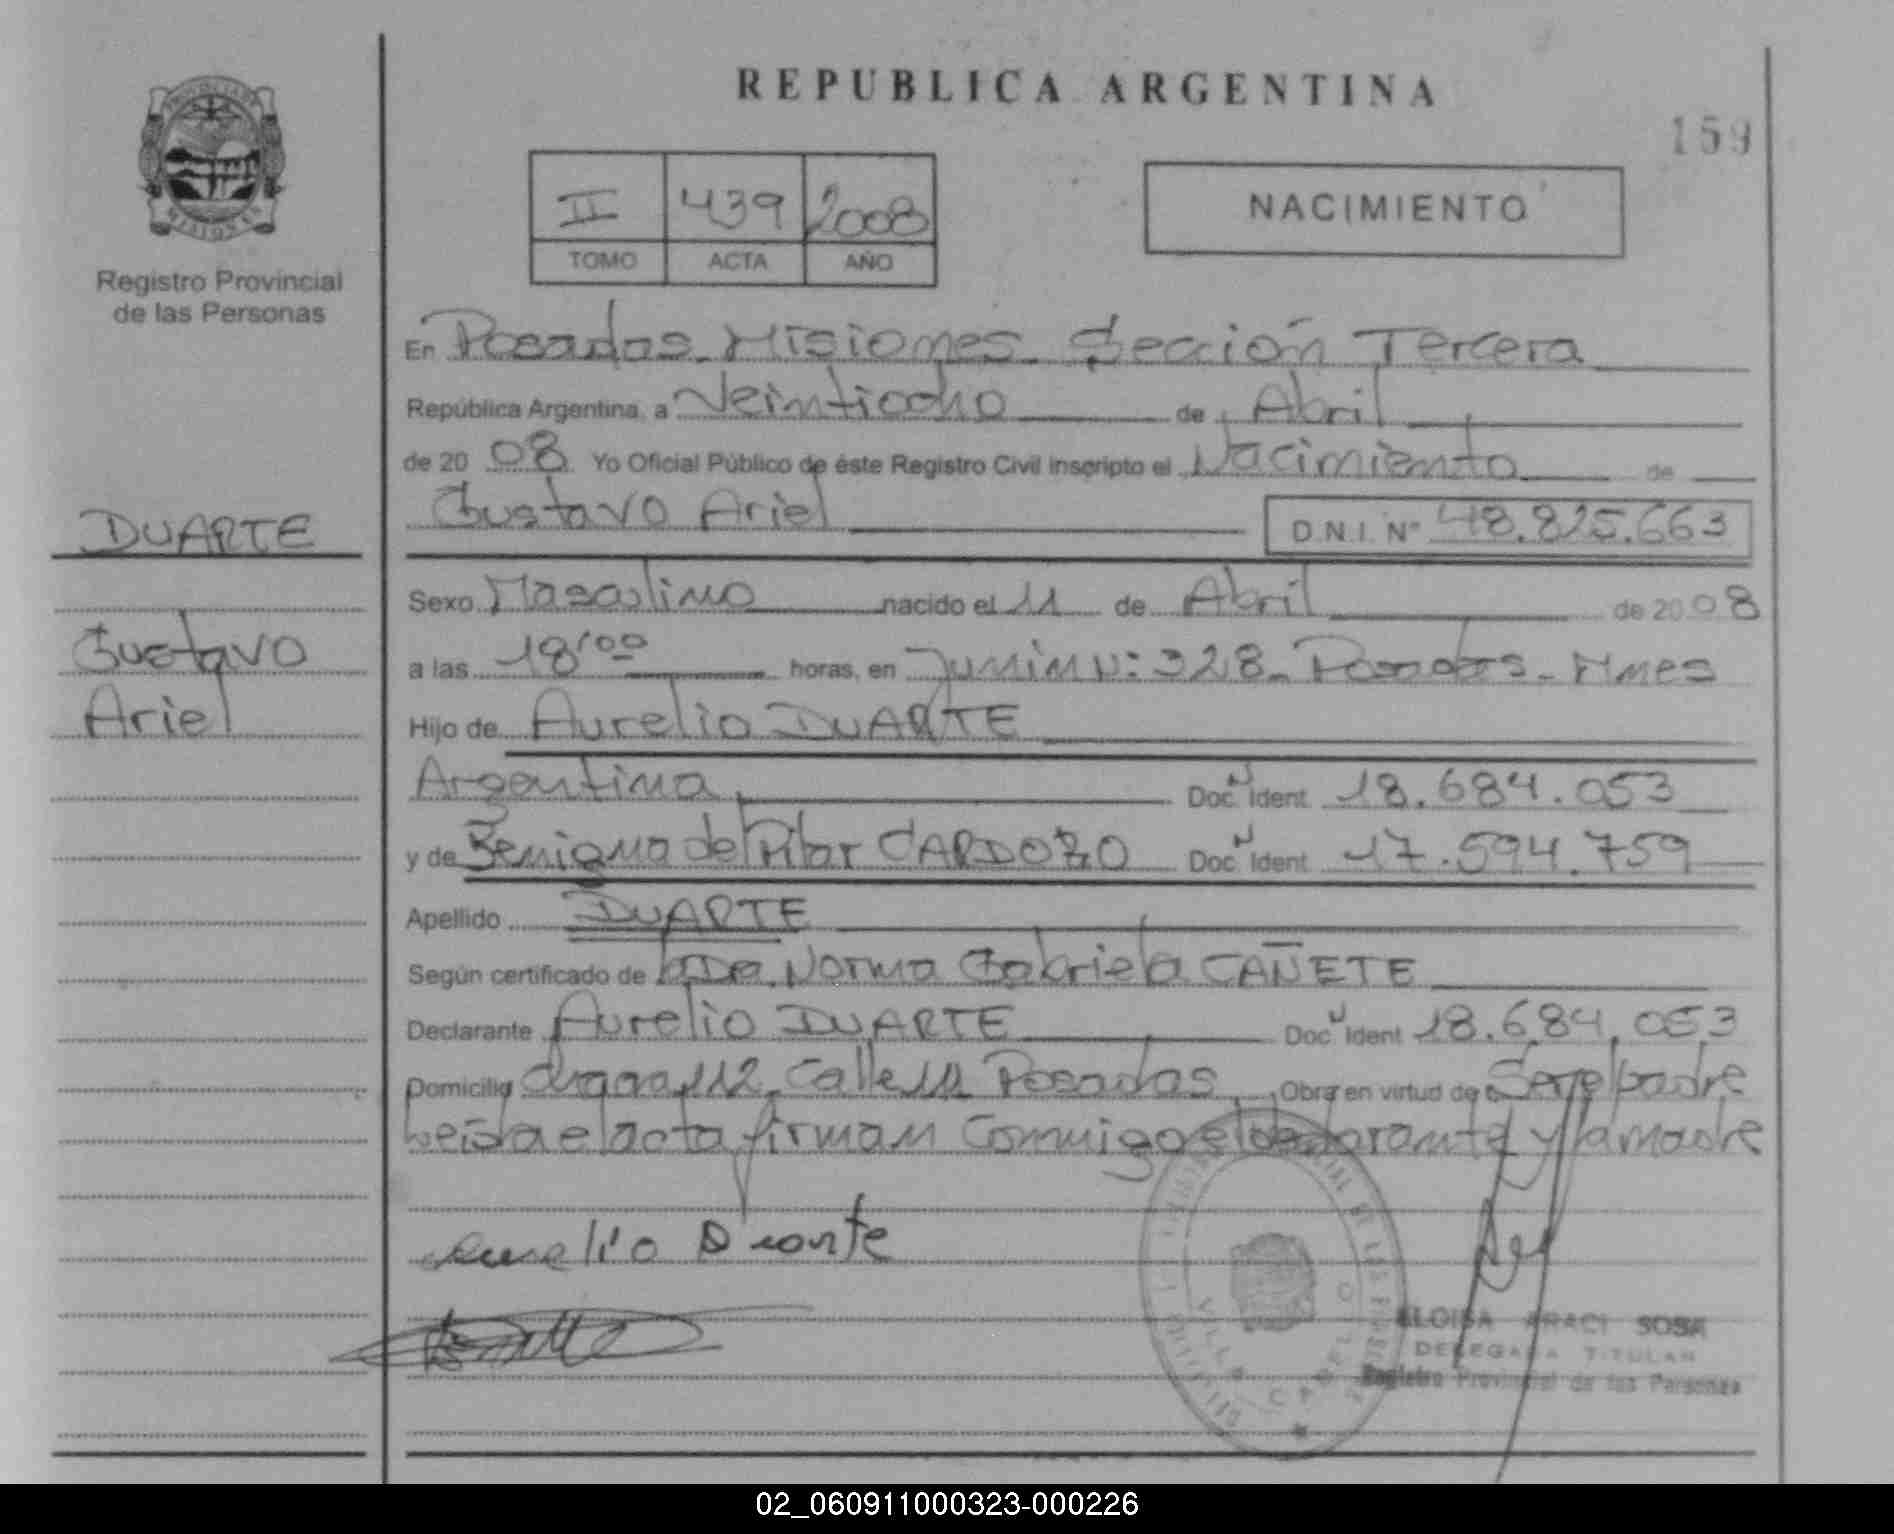 REPUBLICA ARGENTINA
159
PROVINCIA DE
MISIONES
Registro Provincial
de las Personas
II 439 2008
TOMO ACTA AÑO
NACIMIENTO
En Posadas Misiones Sección Tercera
República Argentina, a Veintiocho de Abril
de 20 08 Yo Oficial Público de éste Registro Civil inscripto el Nacimiento de
DUARTE
Gustavo Ariel D.N.I. Nº 48.825.663
Sexo Masculino nacido el 11 de Abril de 20 08
Gustavo
a las 18'00 horas, en Junin N: 328 - Posadas - Mnes
Ariel
Hijo de Aurelio DUARTE
Argentina Doc. Ident 18.684.053
y de Benigna del Pilar CARDOZO Doc. Ident 17.594.759
Apellido DUARTE
Según certificado de la Dra. Norma Gabriela CAÑETE
Declarante Aurelio DUARTE Doc. Ident 18.684.053
Domicilio chacra 112 Calle 11 Posadas Obra en virtud de Ser el padre
Leida el acta firman Conmigo el declarante y la madre
Aurelio Duarte
VILLA CABELLO
ELOISA ARACI SOSA
DELEGADA TITULAR
Registro Provincial de las Personas
02_060911000323-000226